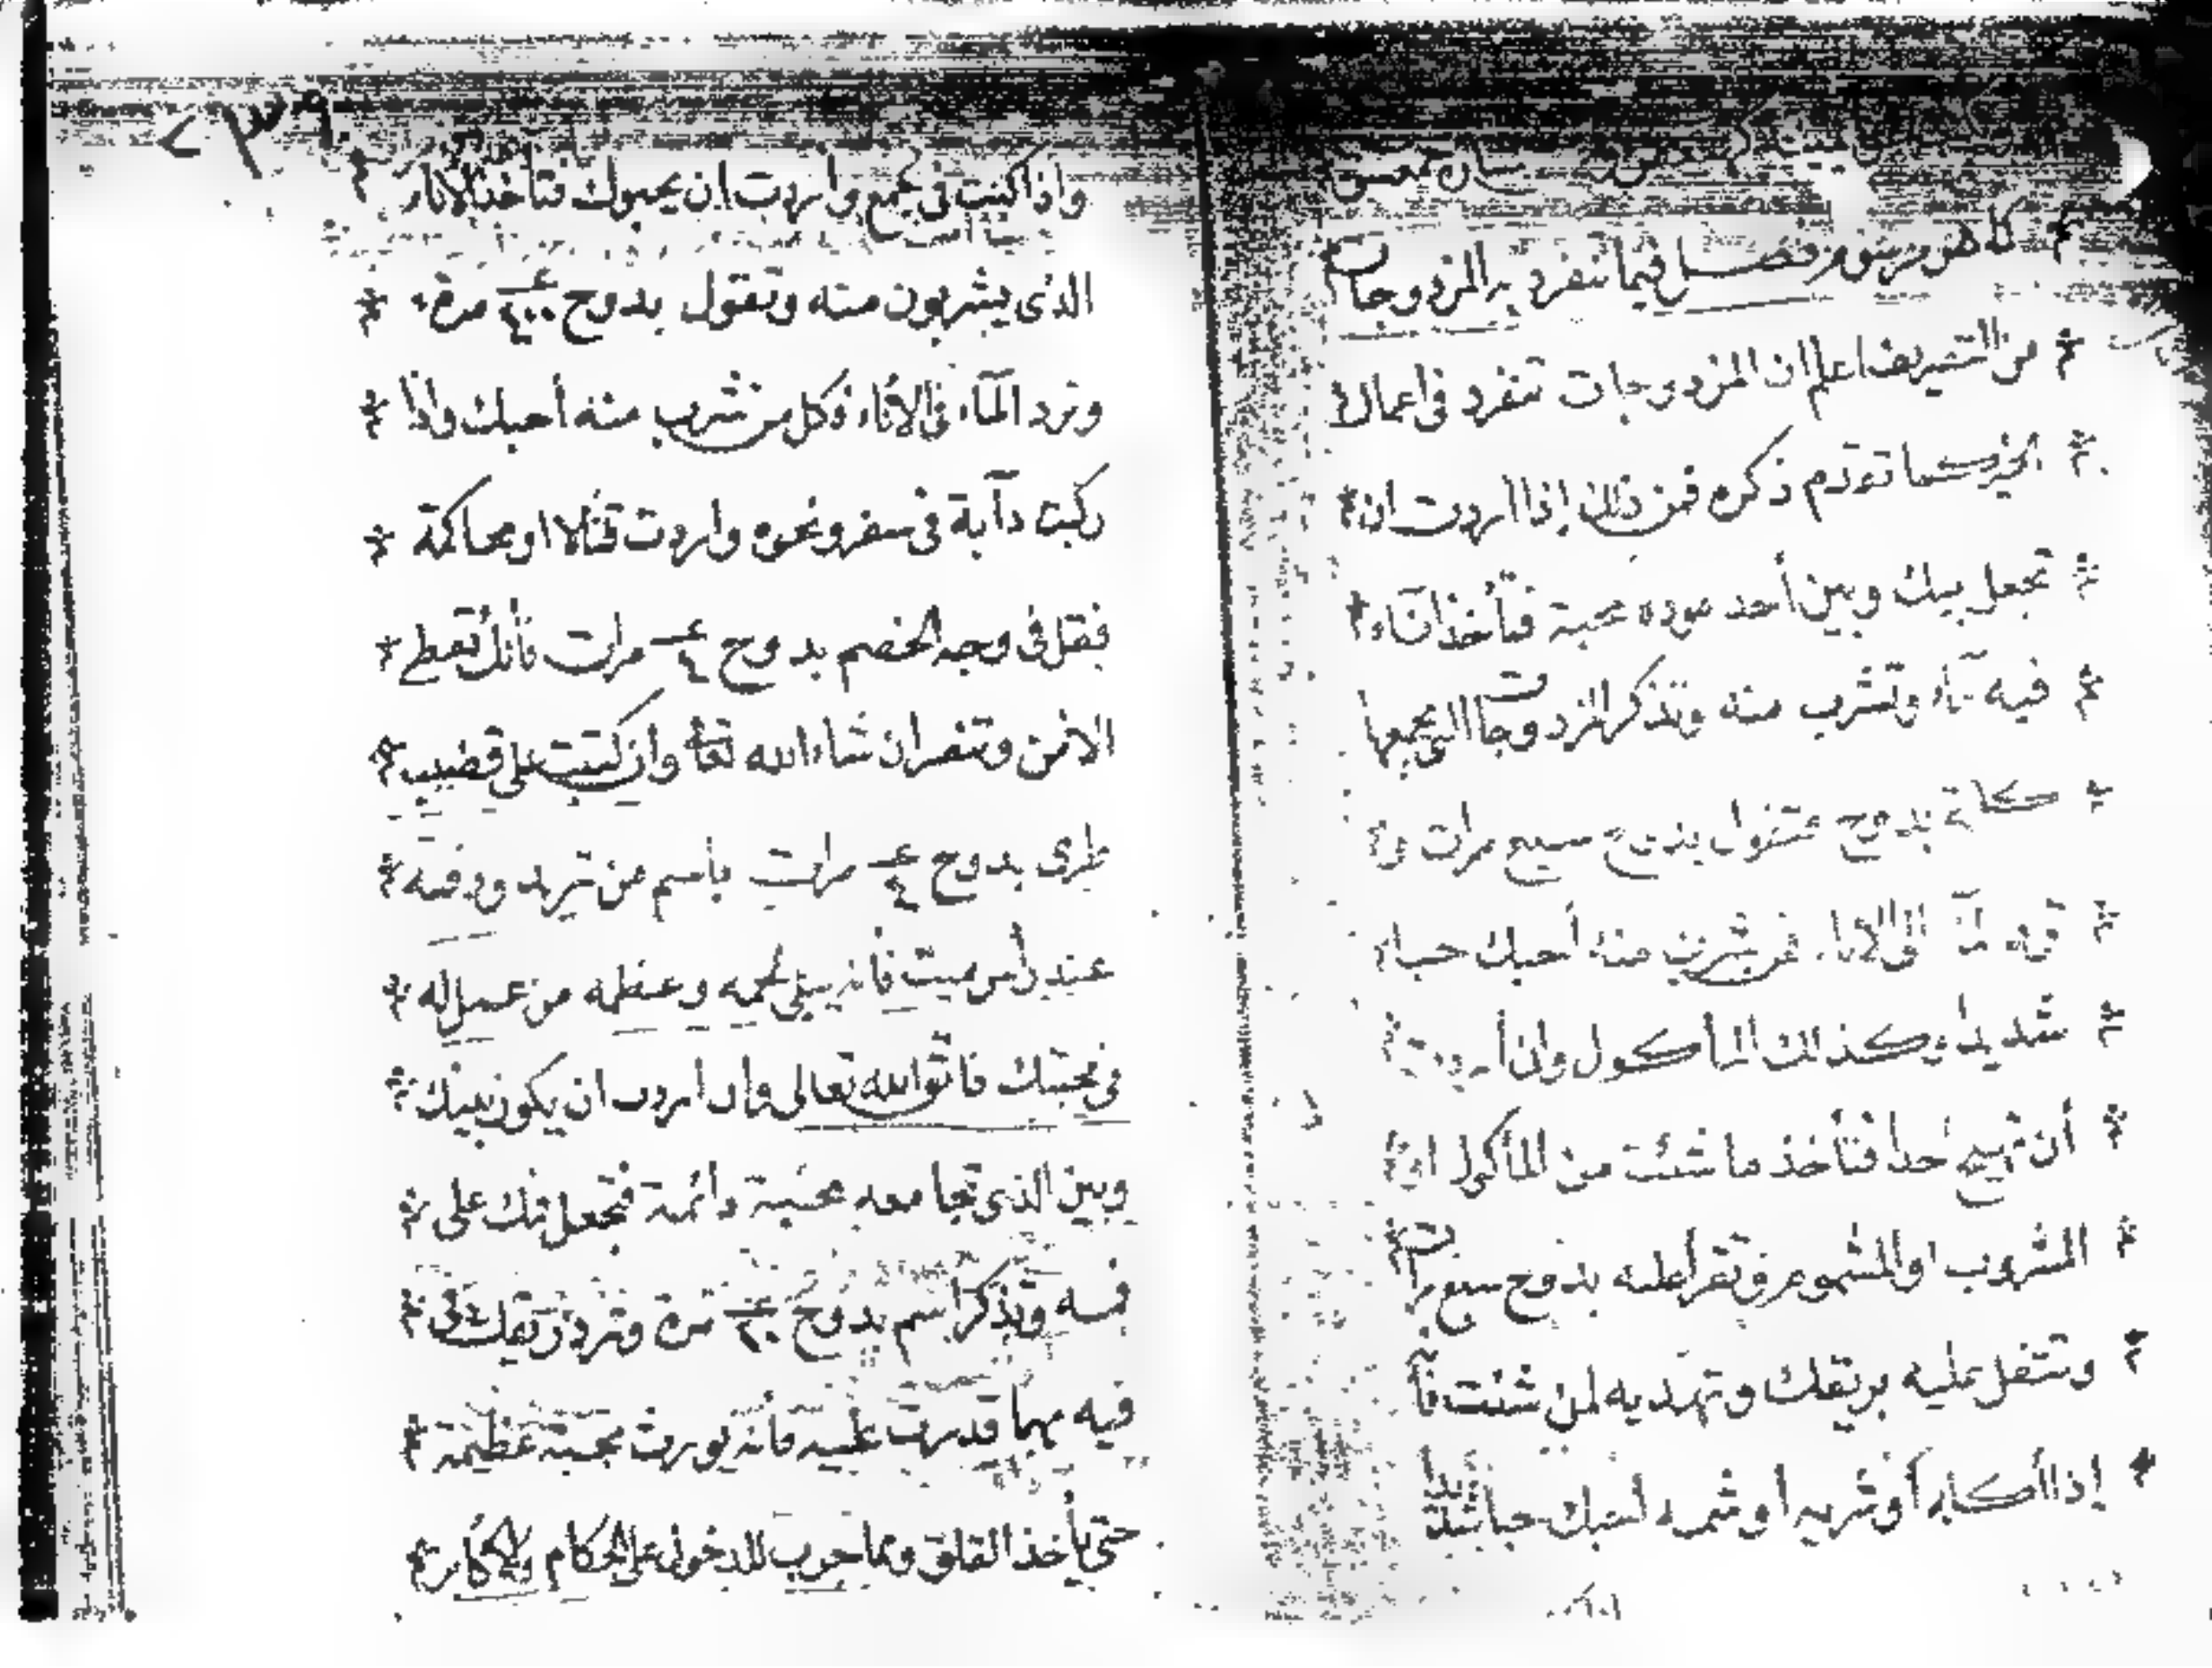 كما هو مرسوم فصل فيما تنفرد به المزدوجات
من التصريف اعلم ان المزدوجات تنفرد في اعمال
الخير كما تقدم ذكره فمن ذلك إذا اردت ان
تجعل بينك وبين أحد موده محبة فتأخذ اناء
فيه ماء وتشرب منه وتذكر المزدوجات التي يجمعها
بدوح فتقول بدوح سبع مرات
الى الاناء فمن شرب منه أحبك حبا
شديدا وكذلك المأكول وان أردت
أن تهيج احدا فتأخذ ما شئت من المأكول او
المشروب او المشموم وتقرأ عليه بدوح سبع مرات
وتتفل عليه بريقك وتهديه لمن شئت فأ
إذا أكله أو شربه أو شمه أحبك حبا شديدا
٢٣٩
واذا كنت في جمع وأردت ان يحبوك فتأخذ الاناء
الذى يشربون منه وتقول بدوح ٤٠٠ مرة
وترد المآء في الأناء فكل من شرب منه أحبك واذا
ركبت دآبة في سفر ونحوه واردت قتالا او محاكمة
فقل في وجه الخصم بدوح ٤ مرات فأنك تعطى
الامن وتنصر ان شاء الله تعا وان كتبت على قضيب
طرى بدوح ٤ مرات باسم من تريد ودفنته
عند رأس ميت فأنه يبلى لحمه وعظمه من عمل له
في محبتك فاتق الله تعالى وان اردت ان يكون بينك
وبين الذى تجامعه محبة دائمة فتجعل فمك على
فمه وتذكر اسم بدوح ٢٠ مرة وترد ريقك في
فيه مهما قدرت عليه فأنه يورث محبة عظيمة
حتى يأخذ القلق ومما جرب للدخول على الحكام والاكابر